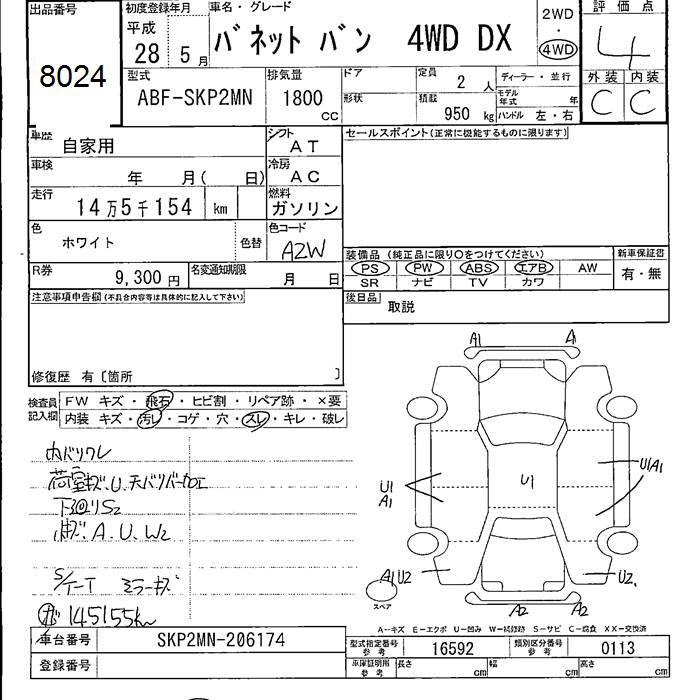 出品番号 初度登録年月 車名・グレード 2WD 評価点
8024 平成 28 5月 バネット バン 4WD DX ・ 4WD 4
型式 排気量 ドア 定員 2 人 ディーラー・並行 外装 内装
ABF-SKP2MN 1800 cc 形状 積載 950 kg モデル年式 年 C C
ハンドル 左・右
車歴 自家用 シフト AT セールスポイント(正常に機能するものに限ります)
車検 年 月( 日) 冷房 AC
走行 14万5千154 km 燃料 ガソリン
色 ホワイト 色替 色コード A2W
装備品 (純正品に限り○をつけてください) 新車保証書
PS PW ABS エアB AW 有・無
SR ナビ TV カワ
R券 9,300円 名変通知期限 月 日
注意事項申告欄(不具合内容等は具体的に記入して下さい) 後日品 取説
修復歴 有〔箇所 〕
検査員記入欄 FW キズ・飛石・ヒビ割・リペア跡・×要
内装 キズ・汚レ・コゲ・穴・スレ・キレ・破レ
A1 A1
内バリワレ
荷室キズ.U.天バリバーカエ
下廻りS2
A.U.W2
S/T-T ミラーキズ
145155km
U1 A1 U1 U1A1
A1U2 U2
スペア A2 A2
A--キズ E-エクボ U-凹み W-補修跡 S-サビ C-腐食 XX-交換済
車台番号 SKP2MN-206174 型式指定番号 参考 16592 類別区分番号 参考 0113
登録番号 車庫証明用 参考 長さ cm 幅 cm 高さ cm